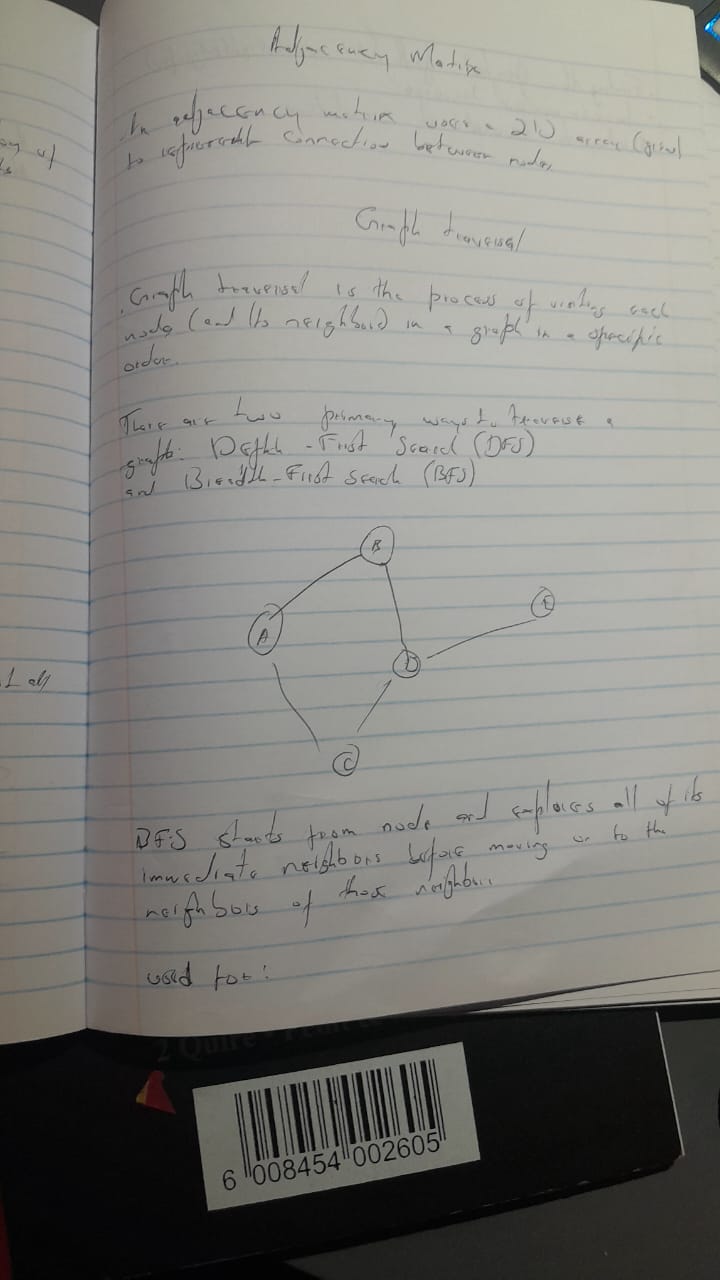 Adjacency Matrix
An adjacency matrix uses a 2D array (grid)
to represent connection between nodes
Graph traversal
Graph traversal is the process of visiting each
node (and its neighbors) in a graph in a specific
order.
There are two primary ways to traverse a
graph: Depth - First Search (DFS)
and Breadth - First Search (BFS)
B
A
E
D
C
BFS starts from node and explores all of its
immediate neighbors before moving on to the
neighbors of those neighbors
used for:
of
1 all
2 Quire
6 008454 002605